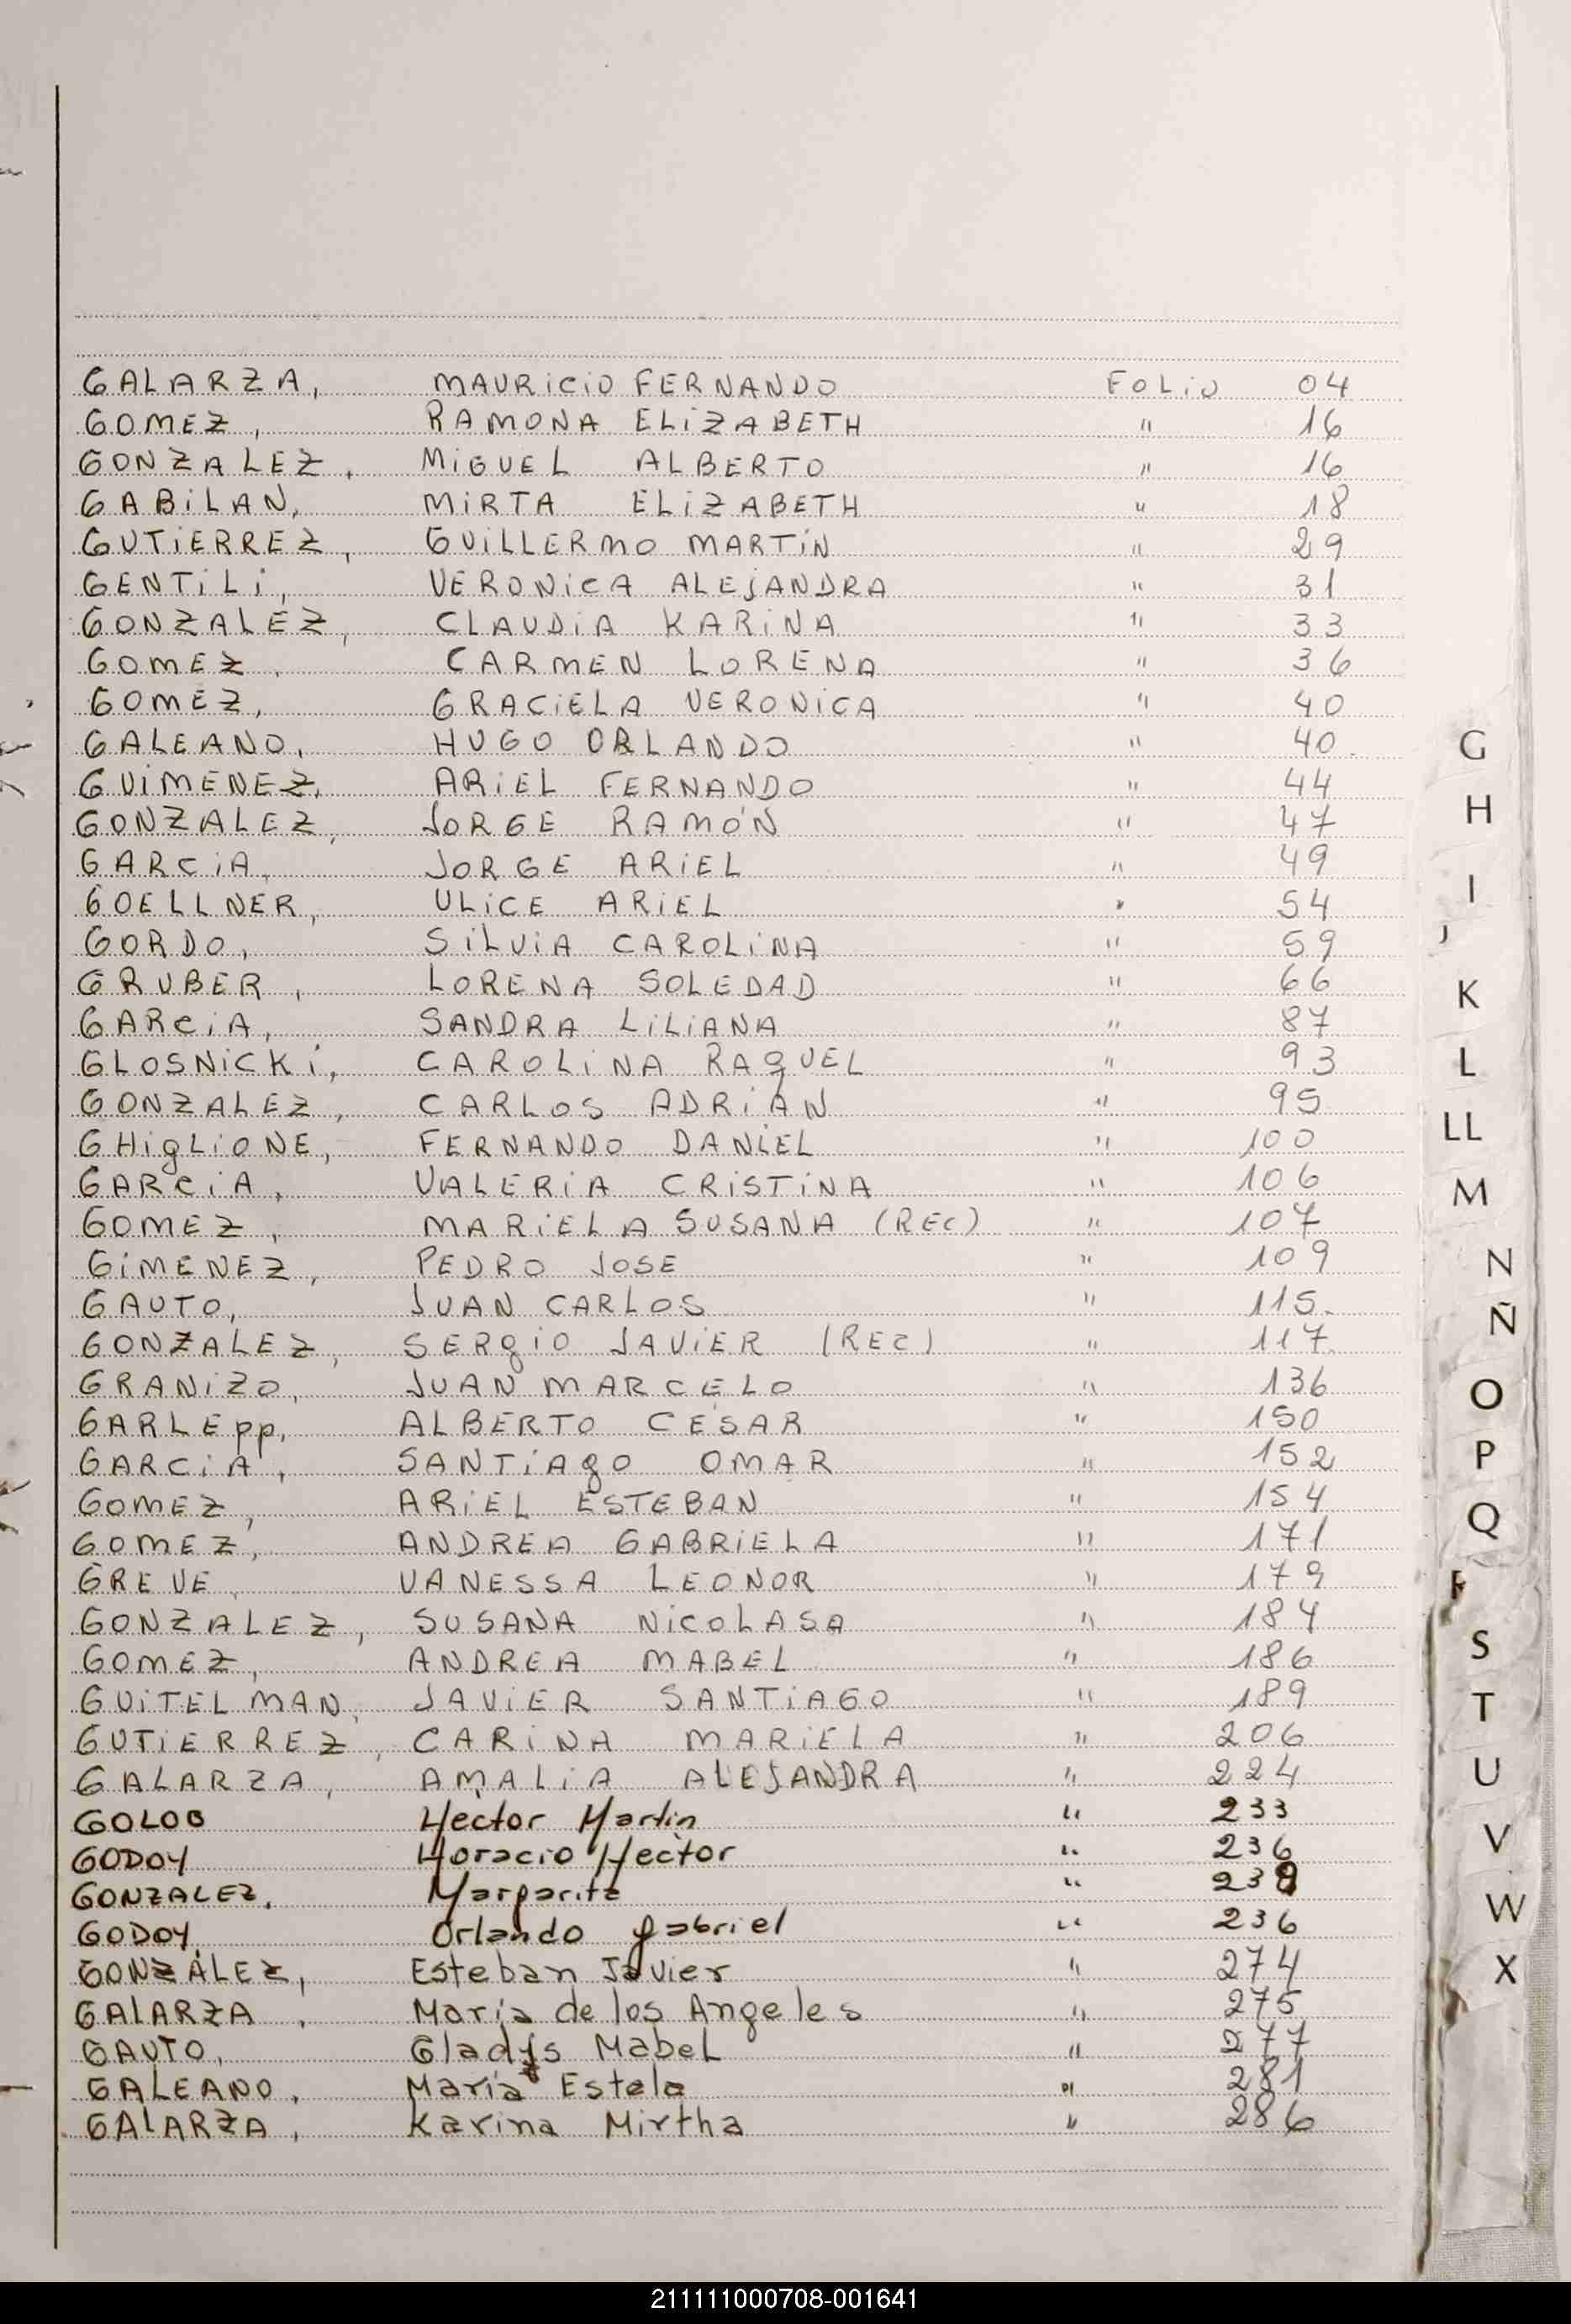 GALARZA, MAURICIO FERNANDO FOLIO 04
GOMEZ, RAMONA ELIZABETH " 16
GONZALEZ, MIGUEL ALBERTO " 16
GABILAN, MIRTA ELIZABETH " 18
GUTIERREZ, GUILLERMO MARTIN " 29
GENTILI, VERONICA ALEJANDRA " 31
GONZALEZ, CLAUDIA KARINA " 33
GOMEZ, CARMEN LORENA " 36
GOMEZ, GRACIELA VERONICA " 40
GALEANO, HUGO ORLANDO " 40
GUIMENEZ, ARIEL FERNANDO " 44
GONZALEZ, JORGE RAMÓN " 47
GARCIA, JORGE ARIEL " 49
GOELLNER, ULICE ARIEL " 54
GORDO, SILVIA CAROLINA " 59
GRUBER, LORENA SOLEDAD " 66
GARCIA, SANDRA LILIANA " 87
GLOSNICKI, CAROLINA RAQUEL " 93
GONZALEZ, CARLOS ADRIAN " 95
GHIGLIONE, FERNANDO DANIEL " 100
GARCIA, VALERIA CRISTINA " 106
GOMEZ, MARIELA SUSANA (REC) " 107
GIMENEZ, PEDRO JOSE " 109
GAUTO, JUAN CARLOS " 115
GONZALEZ, SERGIO JAVIER (REC) " 117
GRANIZO, JUAN MARCELO " 136
GARLEPP, ALBERTO CESAR " 150
GARCIA, SANTIAGO OMAR " 152
GOMEZ, ARIEL ESTEBAN " 154
GOMEZ, ANDREA GABRIELA " 171
GREVE, VANESSA LEONOR " 179
GONZALEZ, SUSANA NICOLASA " 184
GOMEZ, ANDREA MABEL " 186
GUITELMAN, JAVIER SANTIAGO " 189
GUTIERREZ, CARINA MARIELA " 206
GALARZA, AMALIA ALEJANDRA " 224
GOLOB Hector Martin " 233
GODOY Horacio Hector " 236
GONZALEZ. Margarita " 239
GODOY. Orlando gabriel " 236
GONZÁLEZ, Esteban Javier " 274
GALARZA, María de los Angeles " 275
GAUTO, Gladys Mabel " 277
GALEANO, María Estela " 281
GALARZA, Karina Mirtha " 286
G
H
I
J
K
L
LL
M
N
Ñ
O
P
Q
R
S
T
U
V
W
X
211111000708-001641